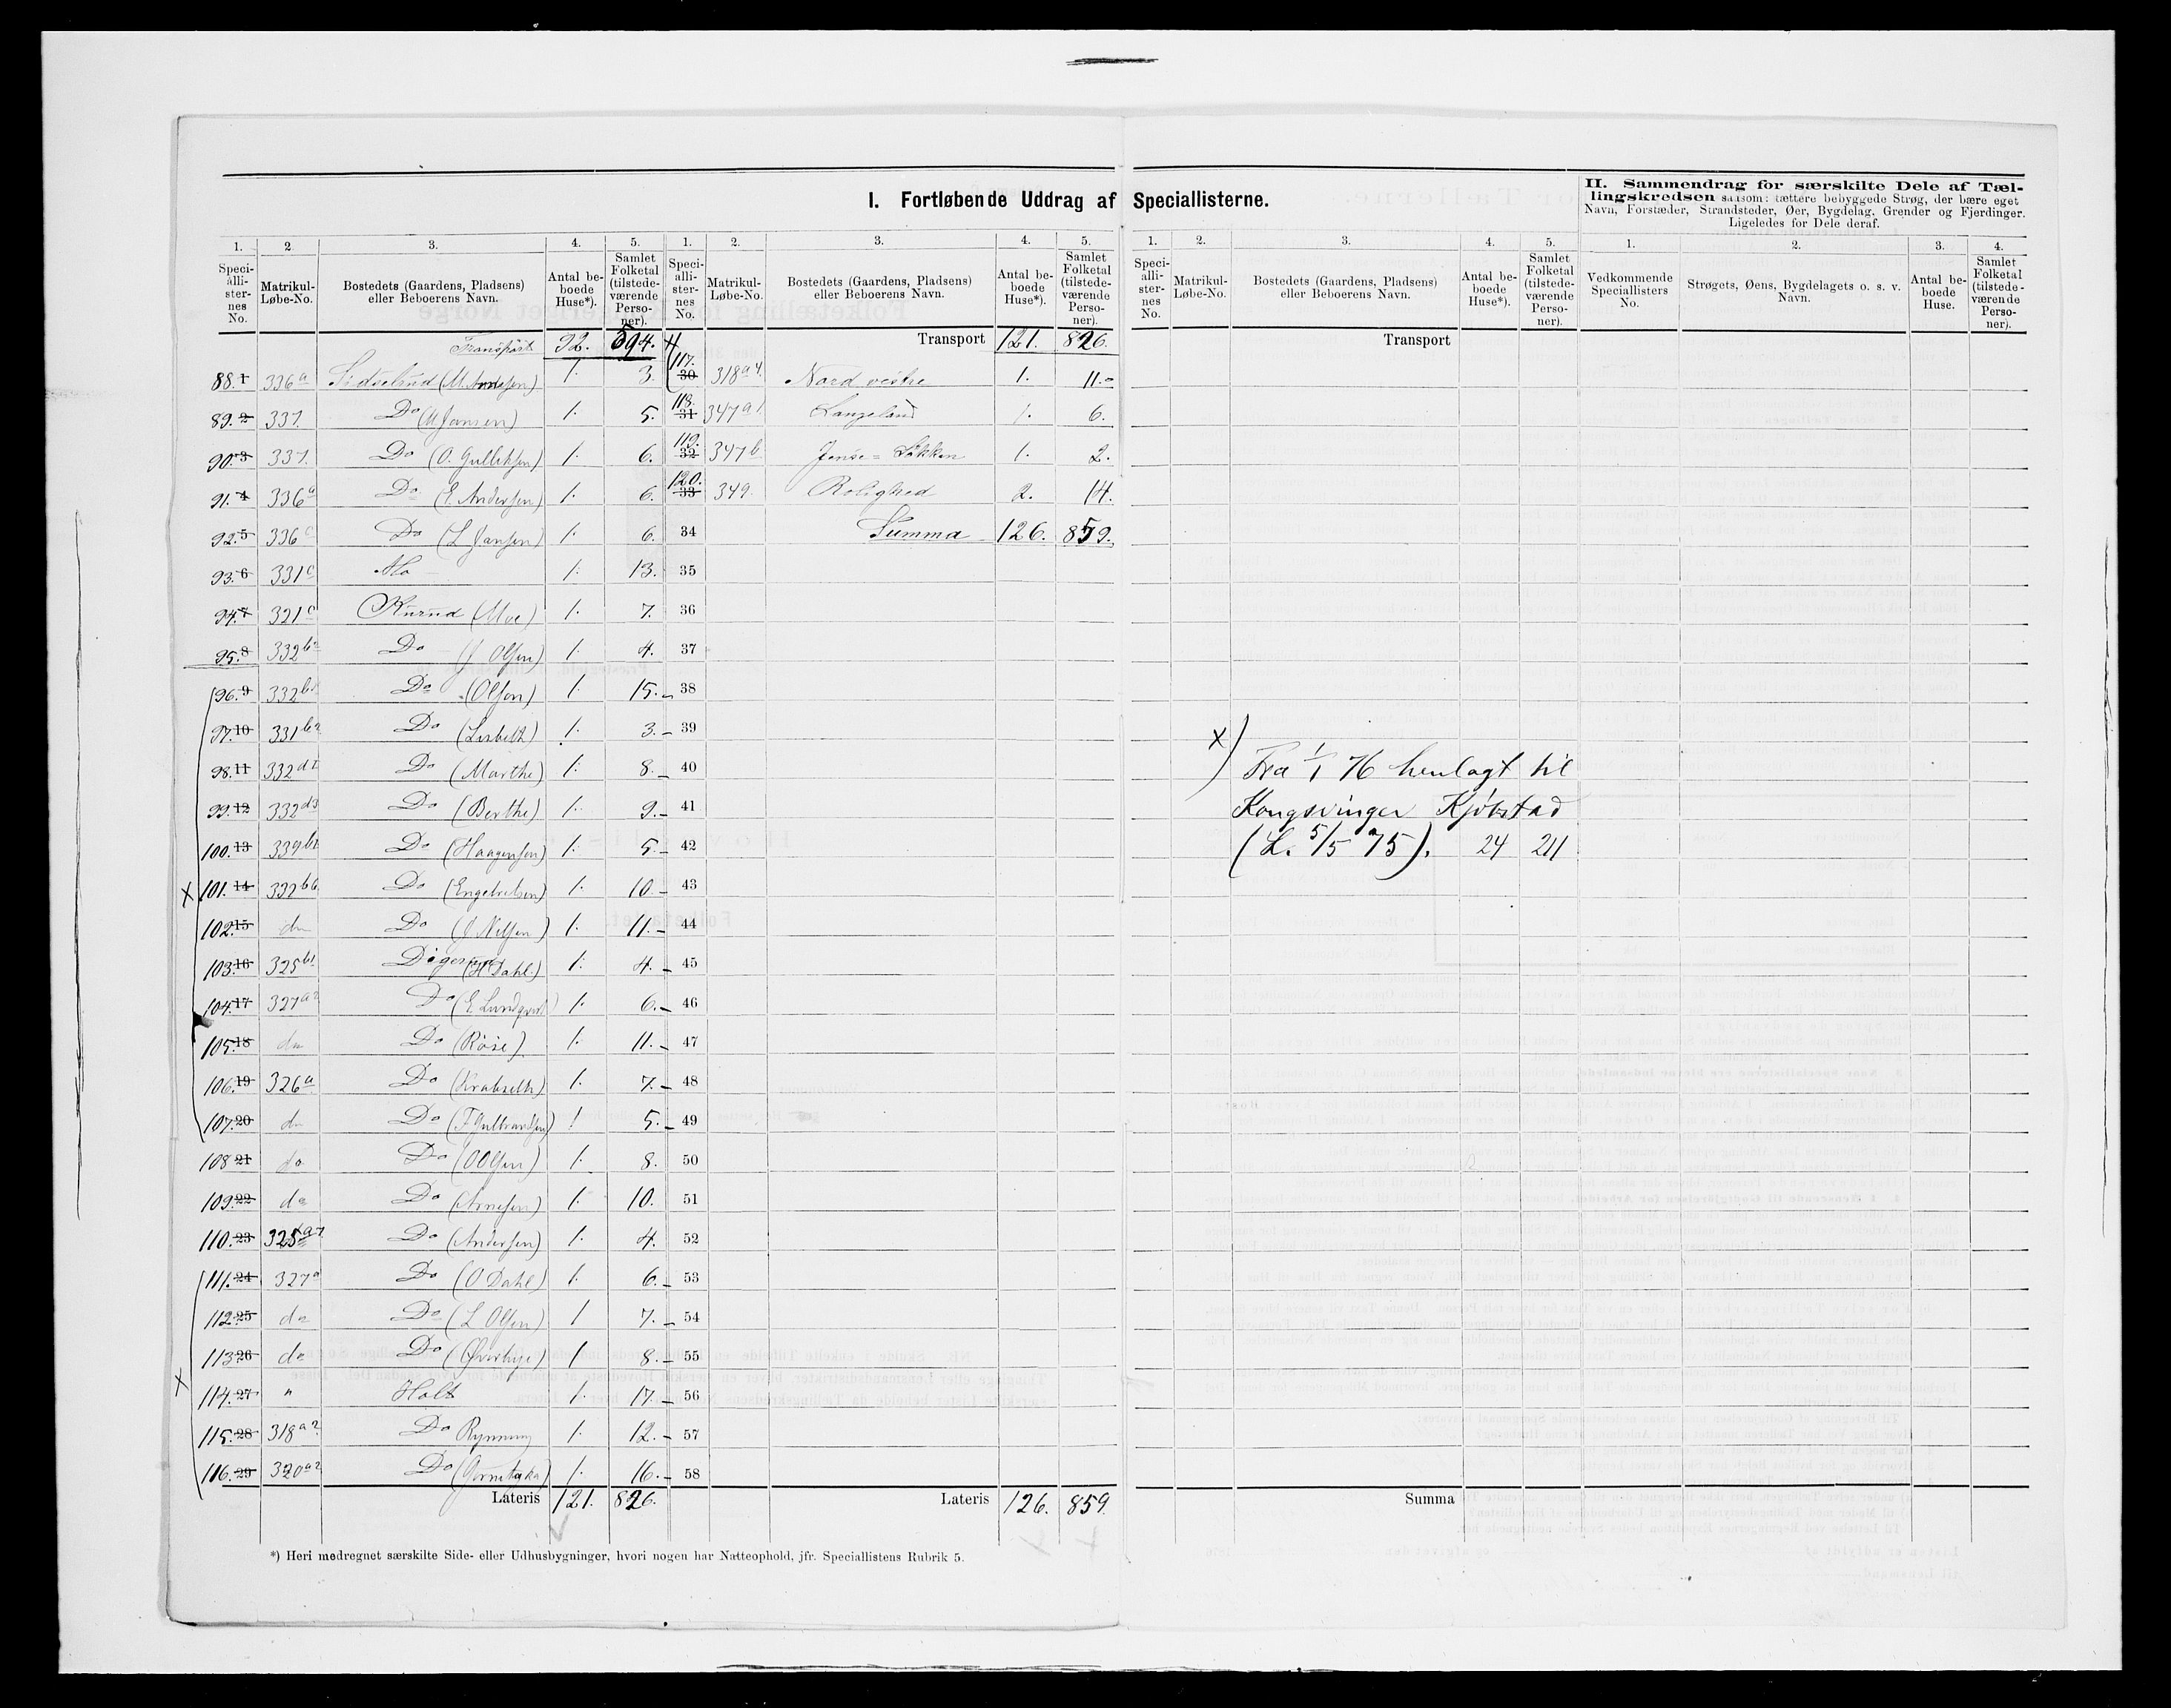 I. Fortløbende Uddrag af Speciallisterne.
II. Sammendrag for særskilte Dele af Tæl-
lingskredsen saasom: tættere bebyggede Strøg, der bære eget
Navn, Forstæder, Strandsteder, Øer, Bygdelag, Grender og Fjerdinger.
Ligeledes for Dele deraf.
1. 2 3. 4. 5. 1. 2. 3. 4. 5. 1. 2. 3. 4. 5. 1. 2. 3. 4.
Speci-alli-ster-nes No. Matrikul-Løbe-No. Bostedets (Gaardens, Pladsens) eller Beboerens Navn. Antal be-boede Huse*). Samlet Folketal (tilstede-værende Perso-ner).
Speci-alli-ster-nes No. Matrikul-Løbe-No. Bostedets (Gaardens, Pladsens) eller Beboerens Navn. Antal be-boede Huse*). Samlet Folketal (tilstede-værende Perso-ner).
Speci-alli-ster-nes No. Matrikul-Løbe-No. Bostedets (Gaardens, Pladsens) eller Beboerens Navn. Antal be-boede Huse*). Samlet Folketal (tilstede-værende Perso-ner).
Vedkommende Speciallisters No. Strøgets, Øens, Bygdelagets o. s. v. Navn. Antal be-boede Huse. Samlet Folketal (tilstede-værende Perso-ner).
Transport 92. 594.
88. 1 336a Sidselrud 1. 3.
89. 2 337. Do (M Jansen) 1. 5.
90. 3 337. Do (O. Gulliksen) 1. 6.
91. 4 336a Do (E. Andersen) 1. 6.
92. 5 336c Do (L Jansen) 1. 6.
93. 6 331c Mo 1. 13.
94. 7 321c Rurud (Moe) 1. 7.
95. 8 332 Do (J Olsen) 1. 4.
96. 9 332 Do (Olsen) 1. 15.
97. 10 331 Do (Lisbeth) 1. 3.
98. 11 332 Do (Marthe) 1. 8.
99. 12 332d3 Do (Berthe) 1. 9.
100. 13 Do (Haagensen) 1. 5.
x 101. 14 332b6 Do (Engebretsen) 1. 10.
102. 15 do Do (J Nilsen) 1. 11.
103. 16 325b1 Digerud (H Dahl) 1. 4.
104. 17 327a2 Do (E Lundqvist) 1. 6.
105. 18 do Do 1. 11.
106. 19 326a Do (Krabseth) 1. 7.
107. 20 do Do (T Gulbrandsen) 1 5.
108 21 do Do (O Olsen) 1. 8.
109. 22 do Do (Arnesen) 1. 10.
110. 23 325 Do (Andersen) 1. 4.
111. 24 327a Do (O Dahl) 1. 6.
112 25 do Do (L Olsen) 1 7.
113 26 do Do (Øverbye) 1 8.
x 114. 27 " Holt 1. 17.
115. 28 318a2 Do Rynning 1. 12.
116. 29 320a2 Do 1. 16.
Lateris 121. 826.
Transport 121. 826.
117. 30 318a4 Nord vestre 1. 11.
118. 31 347a1 Langeland 1. 6.
119. 32 347b Jense=Løkken 1. 2.
120. 33 349. Rolighed 2. 14.
34 Summa 126. 859.
35
36
37
38
39
40
41
42
43
44
45
46
47
48
49
50
51
52
53
54
55
56
57
58
Lateris 126. 859.
Transport
x) Fra 1/1 76 henlagt til
Kongsvinger Kjøbstad
(L. 5/5 75). 24 211
Summa
*) Heri medregnet særskilte Side- eller Udhusbygninger, hvori nogen har Natteophold, jfr. Speciallistens Rubrik 5.